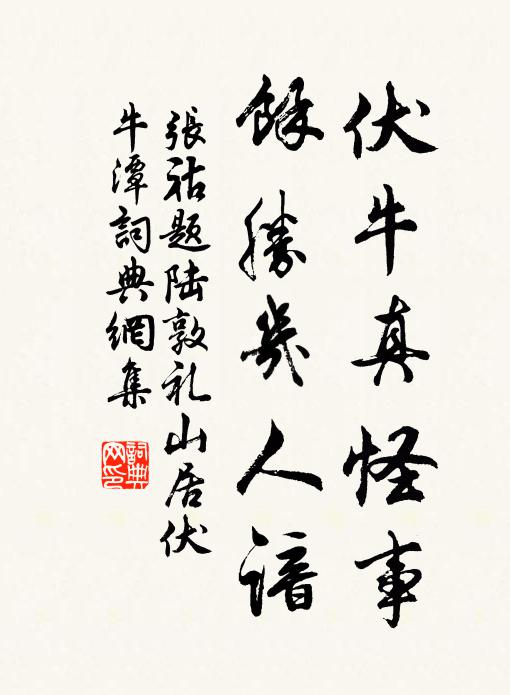 伏牛真怪事
餘勝幾人諳
張祜題陸敦礼山居伏
牛潭詞典網集
詞典網印